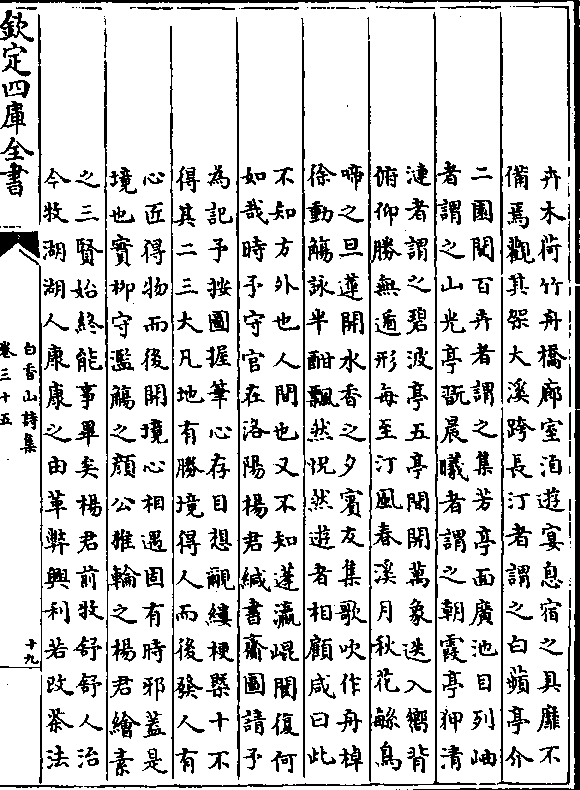 卉木荷竹舟橋廊室洎遊宴息宿之具靡不
備焉觀其架大溪跨長汀者謂之白蘋亭介
二園閱百卉者謂之集芳亭面廣池目列岫
者謂之山光亭翫晨曦者謂之朝霞亭狎清
漣者謂之碧波亭五亭間開萬象迭入嚮背
俯仰勝無遁形每至汀風春溪月秋花繇鳥
啼之旦蓮開水香之夕賓友集歌吹作舟棹
徐動觴詠半酣飄然怳然遊者相顧咸曰此
不知方外也人間也又不知蓬瀛崐閬復何
如哉時予守官在洛陽楊君緘書齎圖請予
為記予按圖握筆心存目想覼縷梗槩十不
得其二三大凡地有勝境得人而後發人有
心匠得物而後開境心相遇固有時邪蓋是
境也實柳守濫觴之顏公椎輪之楊君繪素
之三賢始終能事畢矣楊君前牧舒舒人治
今牧湖湖人康康之由革弊興利若改茶法
欽定四庫全書
白香山詩集
卷三十五
十九